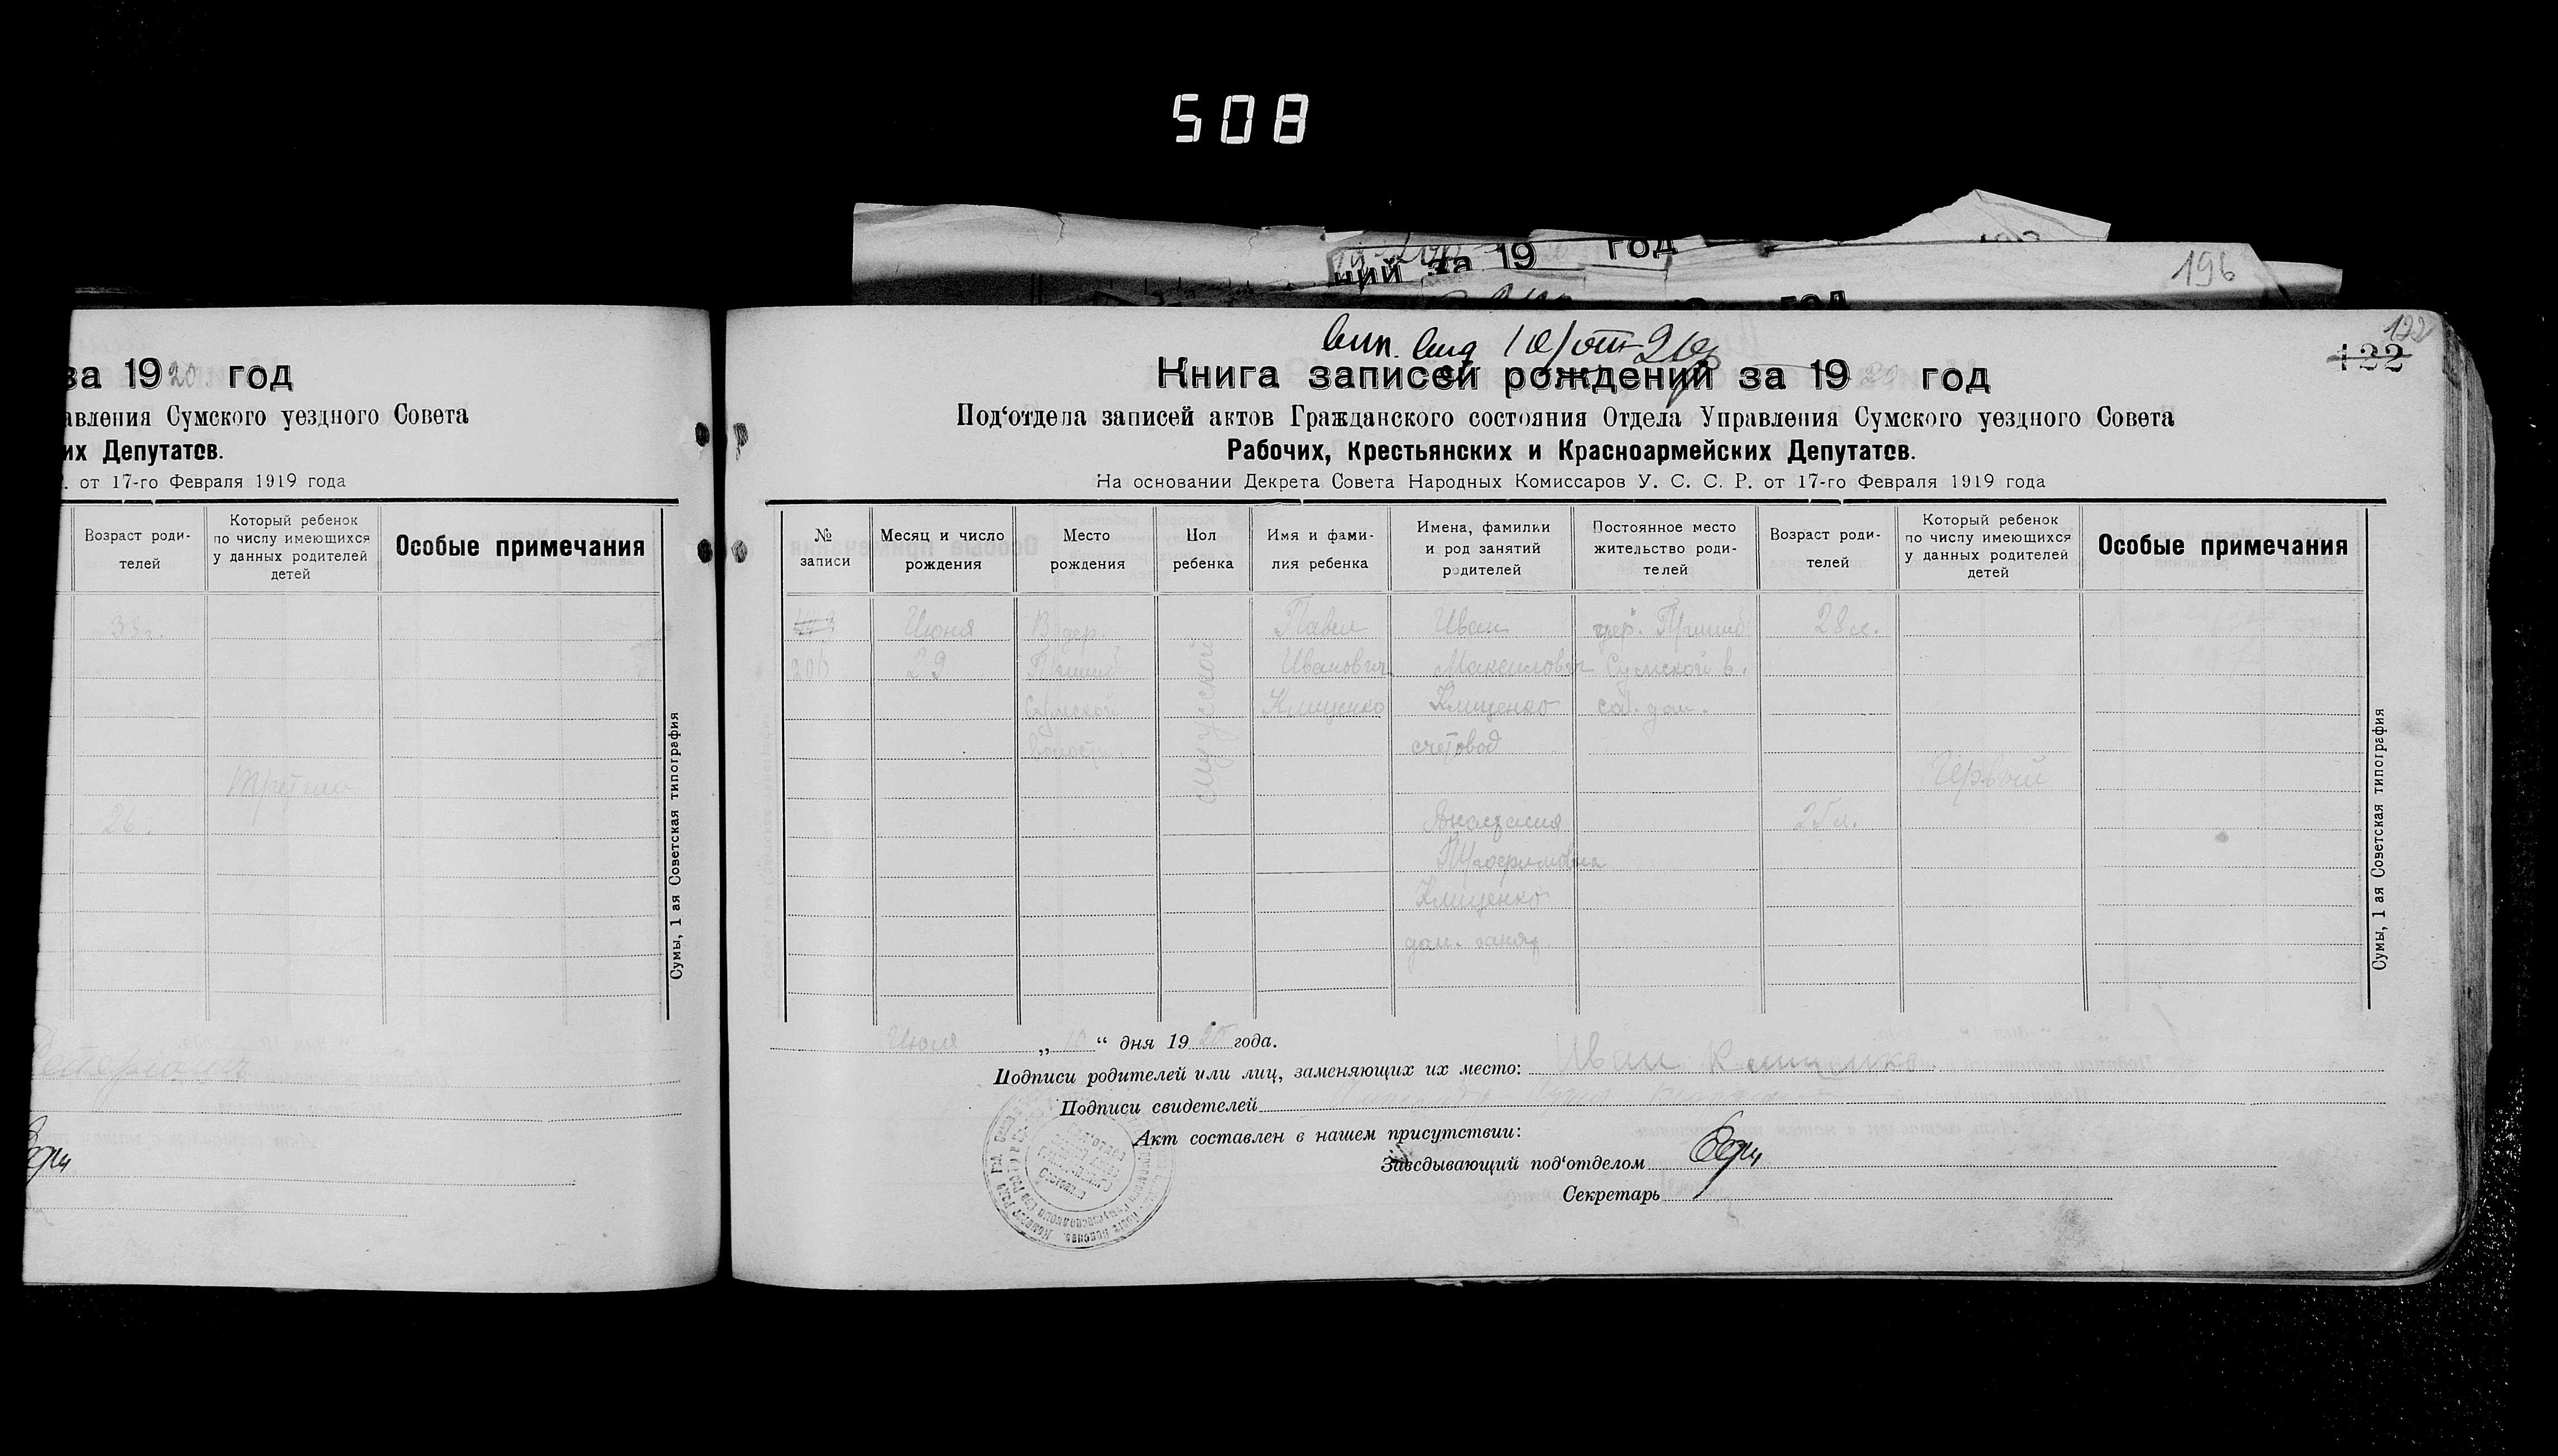 508
ций за 19 год
год
196
за 1920 год
авления Сумского уездного Совета
их Депутатов.
. от 17-го Февраля 1919 года
Возраст роди-
телей
Который ребенок
по числу имеющихся
у данных родителей
детей
Особые примечания
третий
26.
Сумы, 1 ая Советская типография
122
122
Книга записей рождений за 1920 год
Под‘отдела записей актов Гражданского состояния Отдела Управления Сумского уездного Совета
Рабочих, Крестьянских и Красноармейских Депутатов.
На основании Декрета Совета Народных Комиссаров У. С. С. Р. от 17-го Февраля 1919 года
№
записи
Месяц и число
рождения
Место
рождения
Пол
ребенка
Имя и фами-
лия ребенка
Имена, фамилии
и род занятий
родителей
Постоянное место
жительство роди-
телей
Возраст роди-
телей
Который ребенок
по числу имеющихся
у данных родителей
детей
Особые примечания
206
Июня
29
В дер.
Сумской
волости
Мужской
Павел
Иванович
Клищенко
Иван
Максимович
Клищенко
счетовод
Анастасия
Трофимовна
Клищенко
дом. занят.
дер.
Сумской в.
соб. дом.
28 л.
25 л.
Первый
Сумы, 1 ая Советская типография
Июля „ 10 “ дня 1920 года.
Подписи родителей или лиц, заменяющих их место: Иван Клищенко
Подписи свидетелей
Акт составлен в нашем присутствии:
Заведывающий под‘отделом
Секретарь